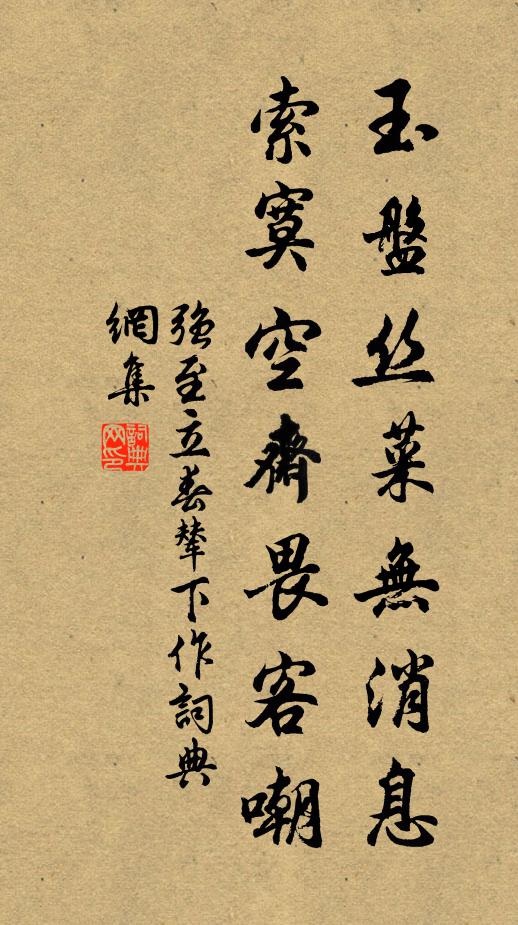 玉盤丝菜無消息
索寞空齋畏客嘲
强至立春輦下作詞典
網集
詞典
网印